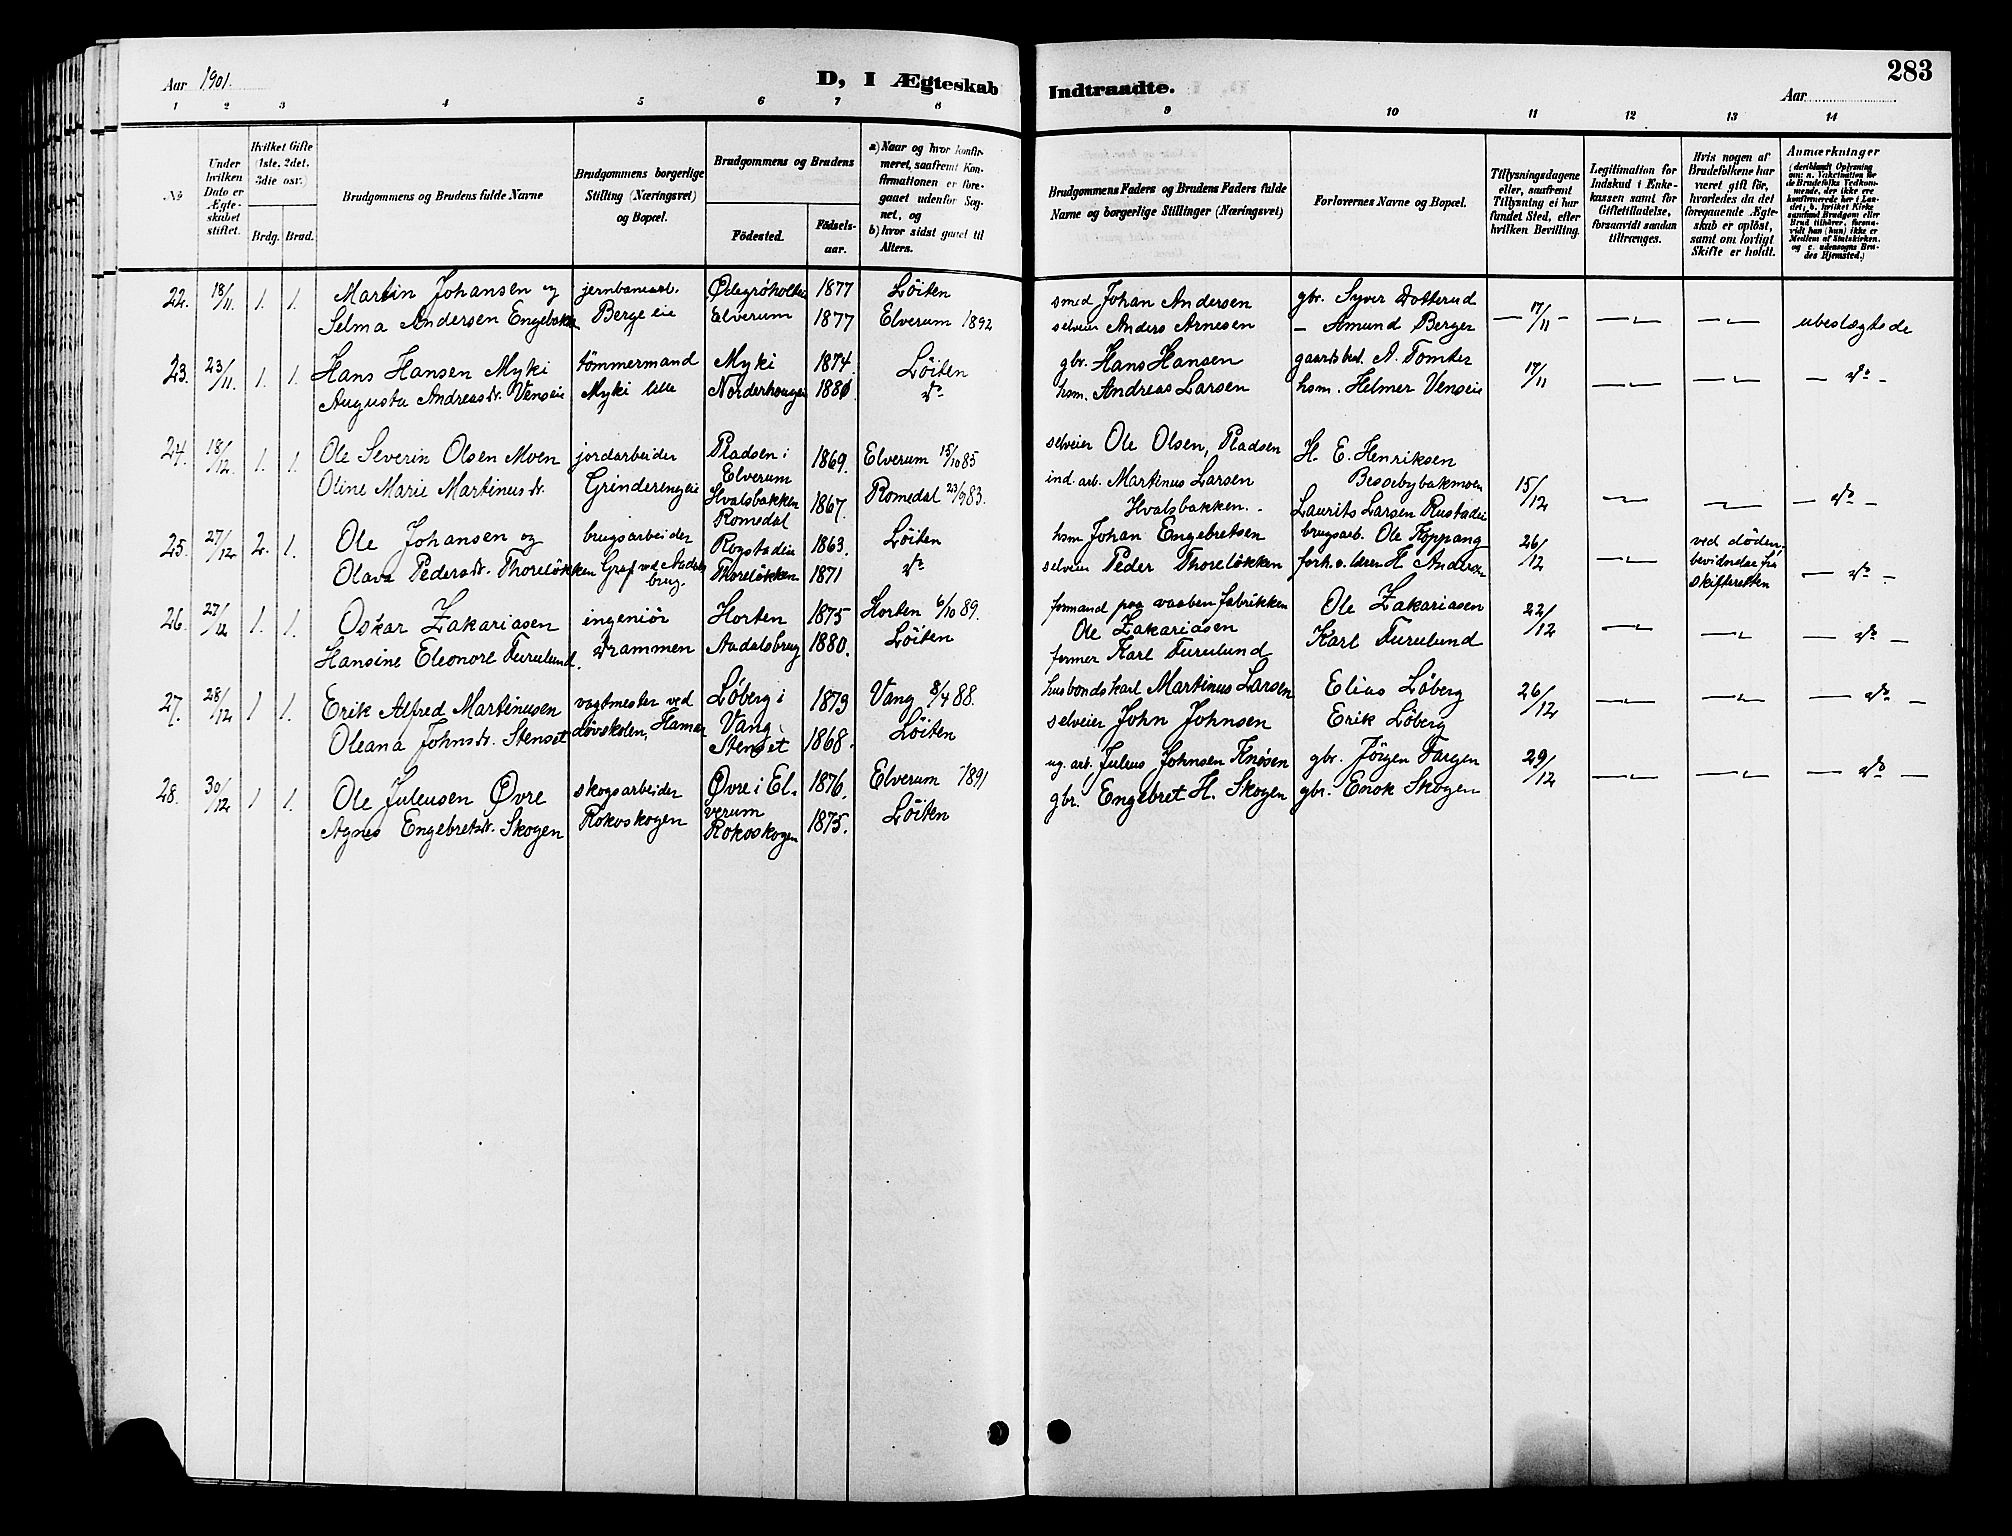 Aar 1901. D, I Ægteskab Indtraadte. Aar 283
1 2 3 4 5 6 7 8 9 10 11 12 13 14
No
Under hvilken Dato er Ægteskabet stiftet.
Hvilket Gifte (1ste, 2det, 3die osv.)
Brdg. Brud.
Brudgommens og Brudens fulde Navne
Brudgommens borgerlige Stilling (Næringsvei) og Bopæl.
Brudgommens og Brudens
Födested. Födselsaar.
a) Naar og hvor konfirmeret, saafremt Konfirmationen er foregaaet udenfor Sognet, og
b) hvor sidst gaaet til Alters.
Brudgommens Faders og Brudens Faders fulde Navne og borgerlige Stillinger (Næringsvei)
Forlovernes Navne og Bopæl.
Tillysningsdagene eller, saafremt Tillysning ei har fundet Sted, efter hvilken Bevilling.
Legitimation for Indskud i Enkekassen samt for Giftetilladelse, forsaavidt saadan tiltrænges.
Hvis nogen af Brudefolkene har været gift för, hvorledes da det foregaaende Ægteskab er oplöst, samt om lovligt Skifte er holdt.
Anmærkninger
(deriblandt Oplysning om: a. Vakcination for de Brudefolks Vedkommende, der ikke ere konfirmerede her i Landet; b. hvilket Kirkesamfund Brudgom eller Brud tilhører, forsaavidt han (hun) ikke er Medlem af Statskirken, og c. udensogns Brudes Hjemsted.)
22. 18/11 1. 1. Martin Johansen og jernbanearb. Ødegrøholtet 1877 Löiten smed Johan Andersen gbr. Syver Dotterud
Selma Andersen Engebakken Berge eie Elverum 1877 Elverum 1892 selveier Anders Arnesen — Amund Berger — 17/11 — — — ubeslægtede
23. 23/11 1. 1. Hans Hansen Myki tömmermand Myki 1874. Löiten gbr. Hans Hansen gaardsbest. A. Tomter 17/11
Augusta Andreasdr. Venseie Myki lille Norderhougen 1880. do hsm. Andreas Larsen hsm. Helmer Venseie — — — do —
24. 18/12. 1. 1. Ole Severin Olsen Moen jordarbeider Pladsen i Elverum 1869. Elverum 15/10 85 selveier Ole Olsen, Pladsen H. E. Henriksen
Oline Marie Martinusdr. Grinderengeie Hvalsbakken Romedal 1867. Romedal 23/9 83. ind. arb. Martinus Larsen Hvalsbakken. Bessebybakmoen Laurits Larsen Rustadeie 15/12 — — — do —
25. 27/12 2. 1. Ole Johansen og brugsarbeider Rogstadeie 1863. Löiten hsm. Johan Engebretsen brugsarb. Ole Koppang 26/12 — ved döden, bevidnelse fra skifteretten
Olava Pedersdr. Thorelökken Graf ved Aadalsbrug. Thorelökken 1871 do selveier Peder Thorelökken forh.v. lærer H. Andersen — do —
26. 27/12 1. 1. Oskar Zakariasen ingeniör Horten 1875 Horten 6/10 89. formand paa vaabenfabrikken Ole Zakariasen Ole Zakariasen 22/12
Hansine Eleonore Furulund. Drammen Aadalsbrug 1880. Löiten former Karl Furulund Karl Furulund — — — do —
27. 28/12 1 1. Erik Alfred Martinusen vagtmester ved Löberg i Vang 1879 Vang 8/4 88. husbondskarl Martinus Larsen Elias Löberg 26/12
Oleana Johnsdr. Stenset Døvskolen, Hamar Stenset 1868. Löiten selveier John Johnsen Erik Löberg — — — do —
28. 30/12 1 1. Ole Juleusen Øvre skogsarbeider Øvre i Elverum 1876. Elverum 1891 ug. arb. Juleus Johnsen Knösen gbr. Jörgen Fargen 29/12
Agnes Engebretsdr. Skogen Rokoskogen Rokoskogen 1875. Löiten gbr. Engebret H. Skogen gbr. Enok Skogen — — — do —